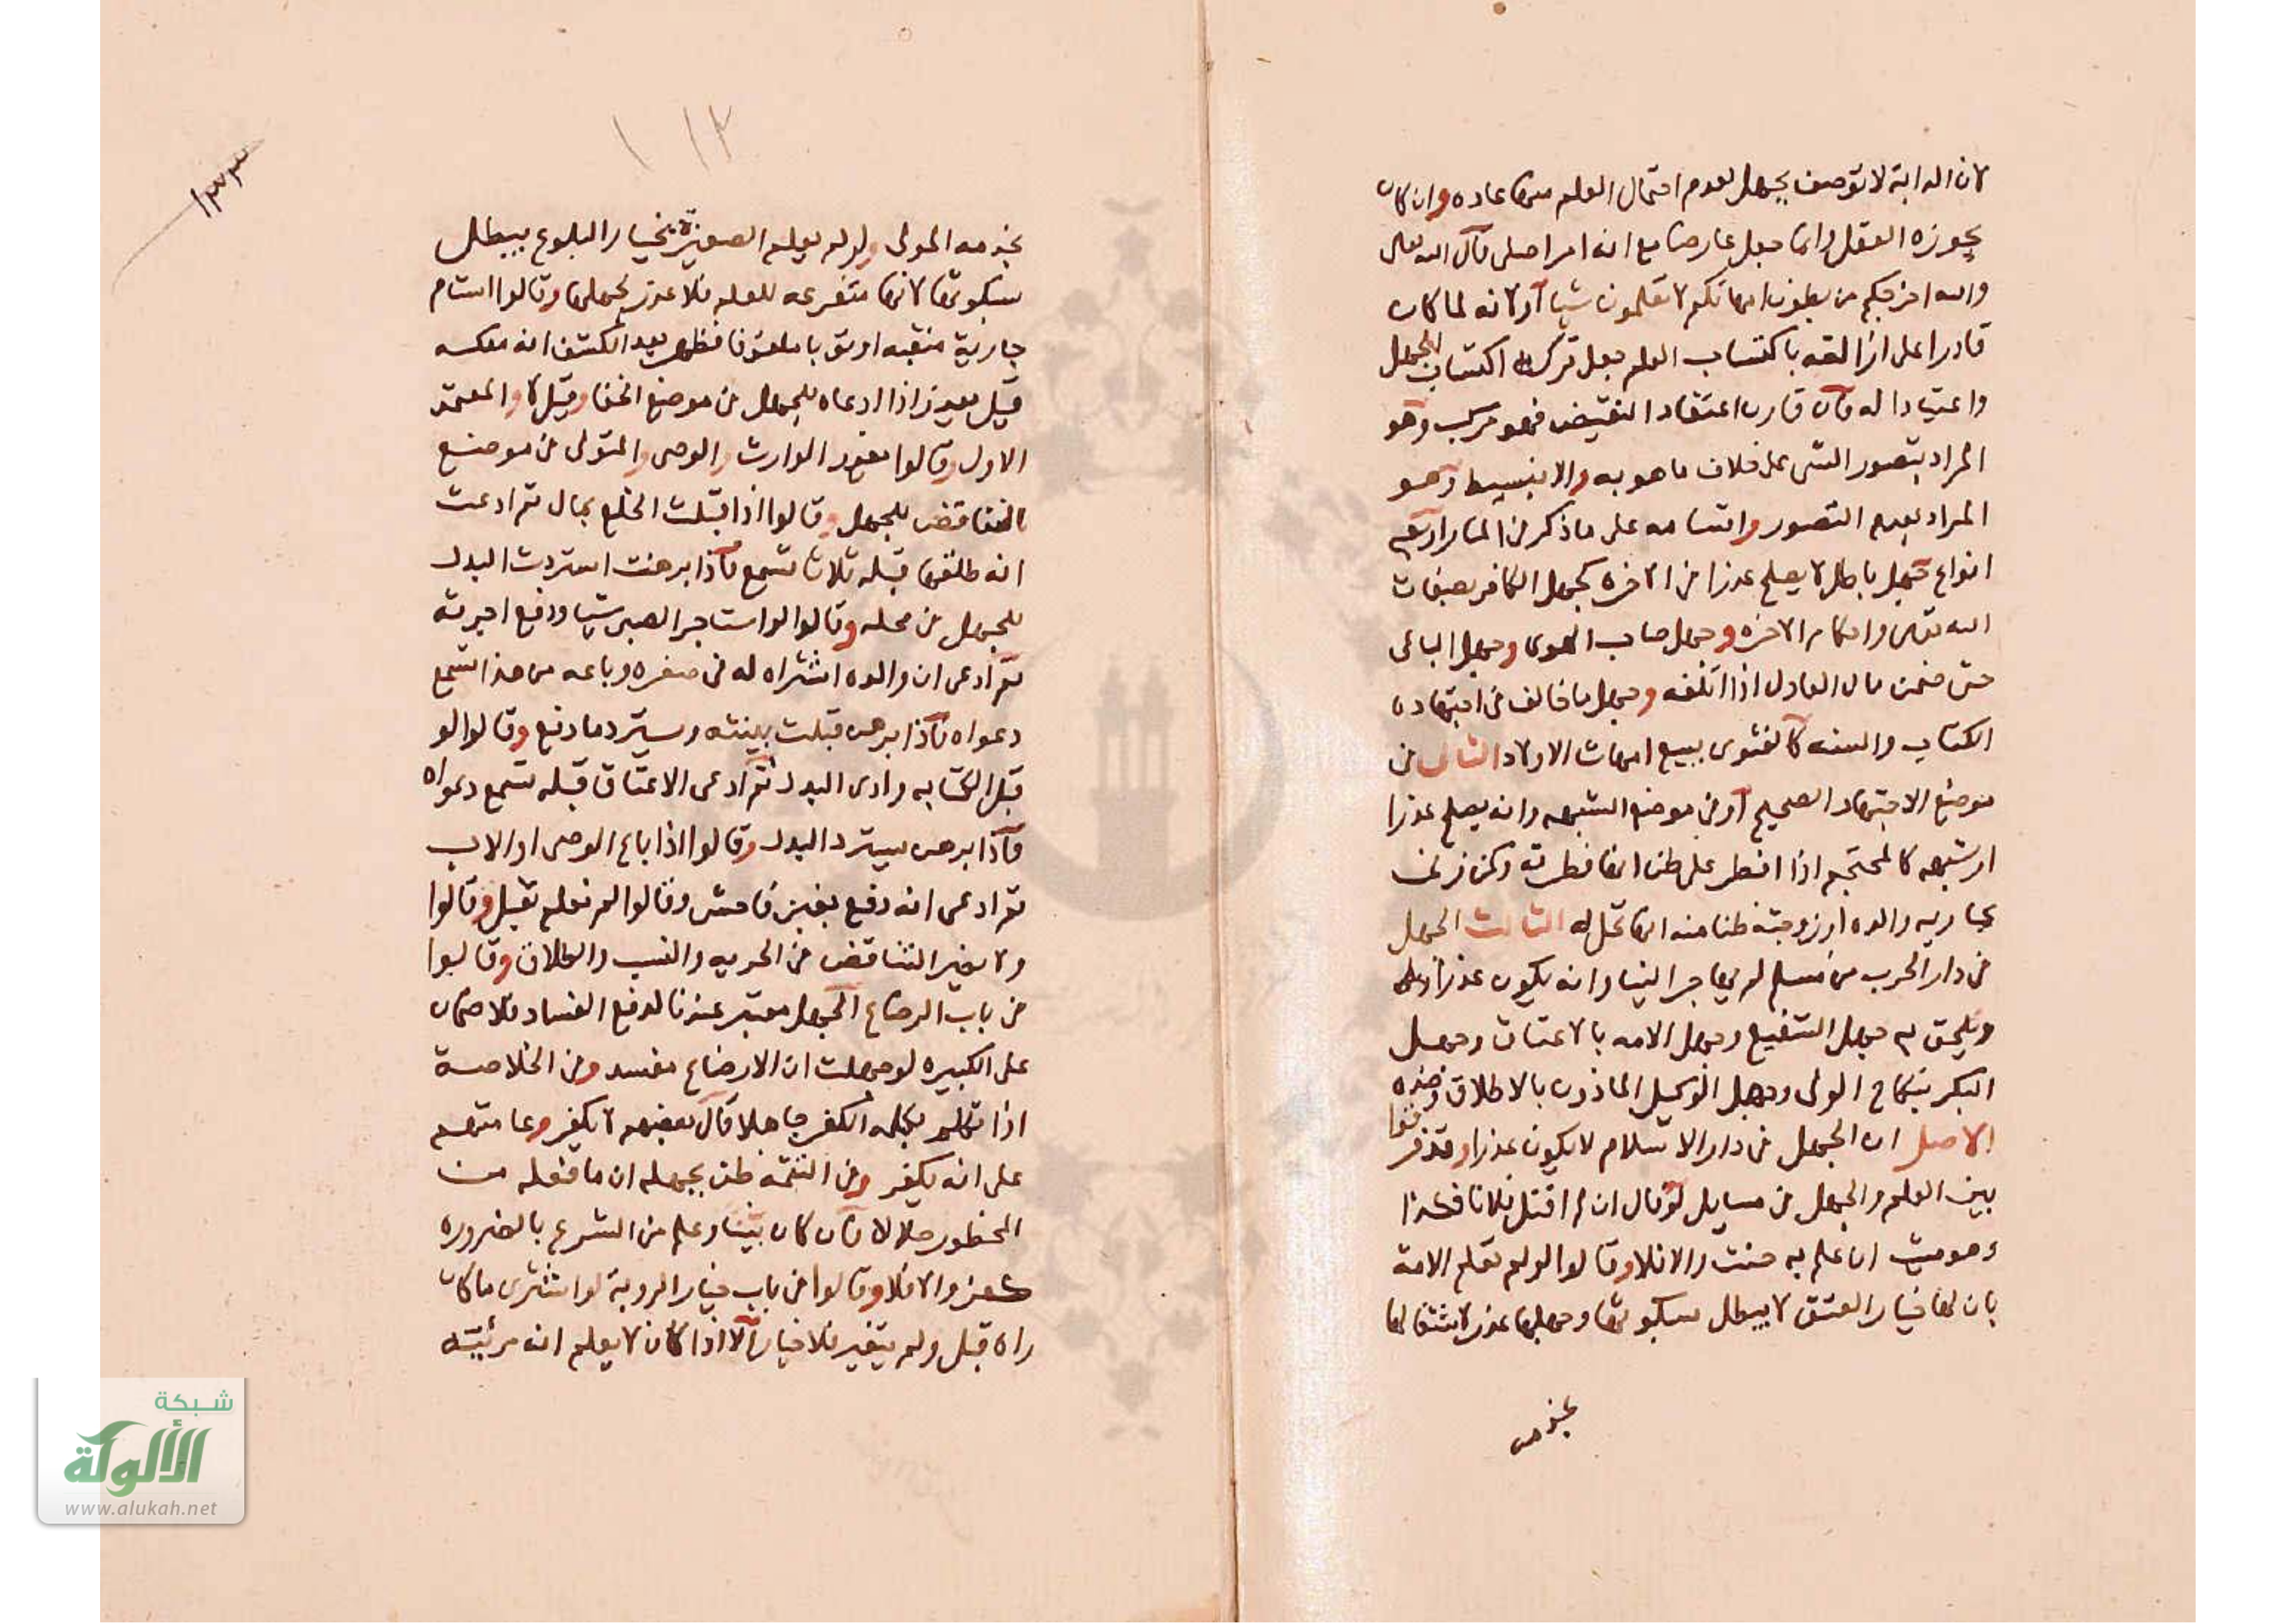 لان الدابة لا توصف بجهل لعدم احتمال العلم منها عاده وان كان
يجوزه العقل وانما جعل عارضا مع انه امر اصلى قال الله تعالى
والله اخرجكم من بطون امهاتكم لا تعلمون شيا او لانه لما كان
قادرا على ازالته باكتساب العلم جعل تركه اكتساب للجهل
واعتيادا له فان قارن اعتقاد النقيض فهو مركب وهو
المراد بتصور الشى على خلاف ما هو به والا فبسيط وهو
المراد بعدم التصور واقسامه على ما ذكر فى المنار اربعة
انواع جهل باطل لا يصلح عذرا فى الاخره كجهل الكافر بصفات
الله تعالى واحكام الاخره وجهل صاحب الهوى وجهل الباغى
حتى ضمن مال العادل اذا اتلفه وجهل ما خالف فى اجتهاده
الكتاب والسنه كالفتوى ببيع امهات الاولاد الثانى فى
موضع الاجتهاد الصحيح او فى موضع الشبهه وانه يصلح عذرا
او شبهه كالمحتجم اذا افطر على ظن انها فطرته وكمن زنى
بجاريه والده او زوجته ظنا منه انها تحل له الثالث الجهل
فى دار الحرب من مسلم لم يهاجر الينا وانه يكون عذرا
ويلحق به جهل الشفيع وجهل الامه بالاعتاق وجهل
البكر بنكاح الولى وجهل الوكيل الماذون بالاطلاق وضده
الاصل ان الجهل فى دار الاسلام لا يكون عذرا وقد فرقوا
بين العلم والجهل فى مسايل لو قال ان لم اقتل فلانا فكذا
وهو ميت ان علم به حنث والا فلا وقالوا لو لم تعلم الامة
بان لها خيار العتق لا يبطل بسكوتها وجهلها عذر لاشتغالها
بخدمه
١١٢
١٣٣
بخدمه المولى ولو لم يعلم الصغيرة بخيار البلوع يبطل
بسكوتها لانها متفرغه للعلم فلا عذر لجهلها وقالوا استام
جارية منتقبه او ثوبا ملفوفا فظهر بعد الكشف انه ملكه
قيل يعذر اذا ادعاه للجهل فى موضع الخفا وقيل لا والمعتمد
الاول وقالوا يعذر الوارث والوصى والمتولى فى موضع
التناقض للجهل وقالوا اذا قبلت الخلع بمال ثم ادعت
انه طلقها قبله ثلاثا تسمع فاذا برهنت استردت البدل
للجهل فى محله وقالوا لو استاجر الصبى شيا ودفع اجرته
ثم ادعى ان والده اشتراه له فى صغره وباعه من هذا تسمع
دعواه فاذا برهن قبلت بينته ويسترد ما دفع وقالوا لو
قبل الكتابه وادى البدل ثم ادعى الاعتاق قبله تسمع دعواه
فاذا برهن يسترد البدل وقالوا اذا باع الوصى او الاب
ثم ادعى انه وقع بغبن فاحش وقالوا لم نعلم تقبل وقالوا
ولا يضر التناقض فى الحريه والنسب والطلاق وقالوا
فى باب الرضاع الجهل معتبر عندنا لدفع الفساد فلا ضمان
على الكبيره لو جهلت ان الارضاع مفسد وفى الخلاصة
اذا تكلم بكلمه الكفر جاهلا قال بعضهم لا يكفر وعامتهم
على انه يكفر وفى اليتيمة ظن بجهله ان ما فعله من
المحظور حلالا فان كان بينا وعلم من الشرع بالضروره
كفر والا فلا وقالوا فى باب خيار الروية لو اشترى ما كان
راه قبل ولم يتغير فلا خيار الا اذا كان لا يعلم انه مرئيته
شبكة
الألوكة
www.alukah.net